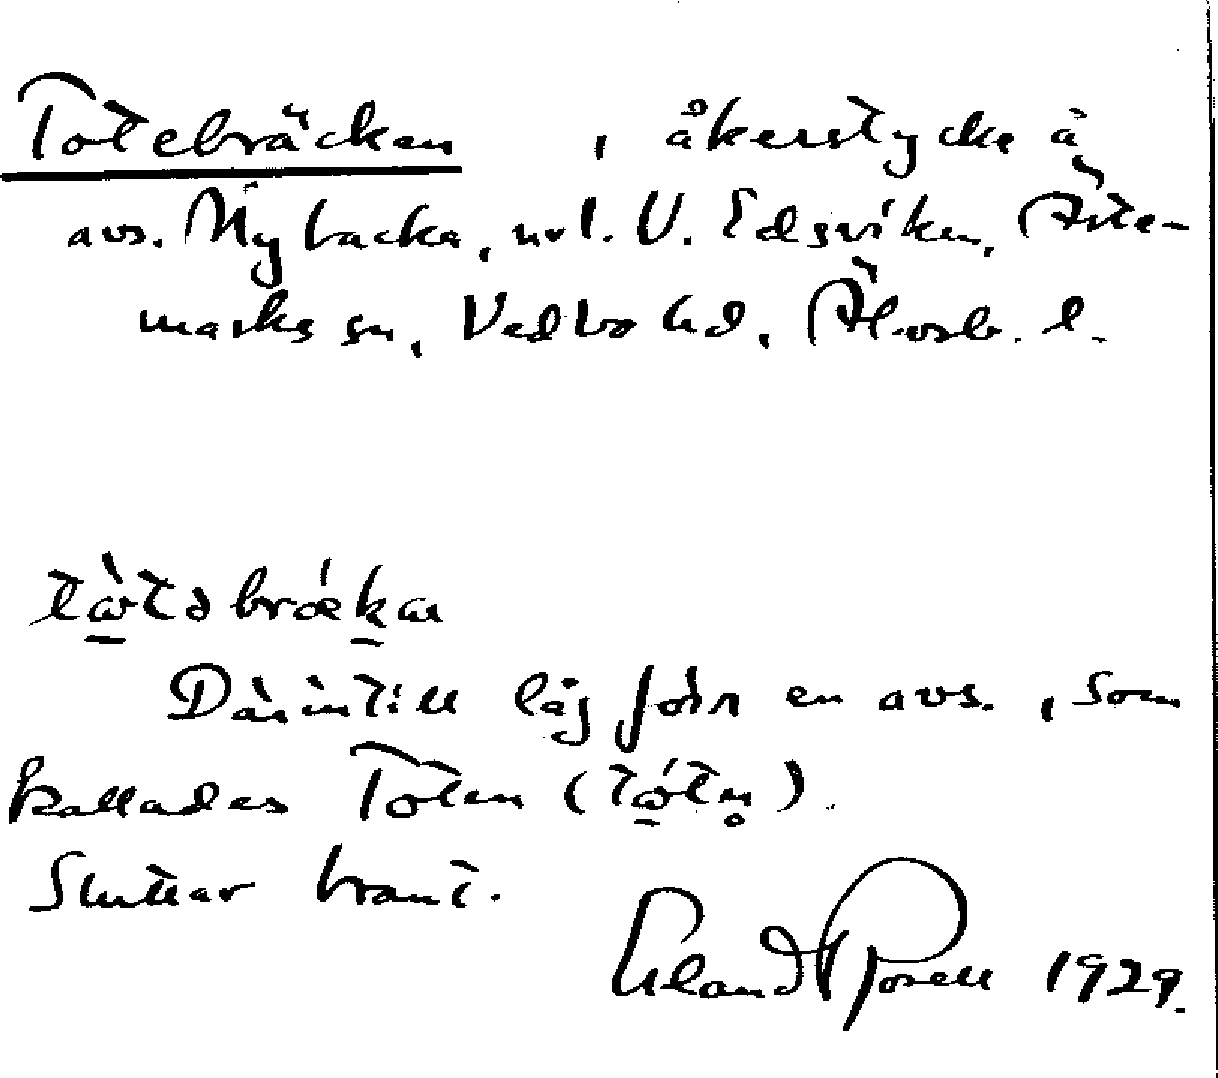 Totebräcken , åkerstycke å
avs. Nybacka, u. V. Edsviken, Åse-
marks sn, Vedbo hd, Älvsb. l.
tòtəbrǽkan
Därintill låg förr en avs., som
kallades Toten (tótn̥).
Sluttar brant.
Erland Rosell 1929.